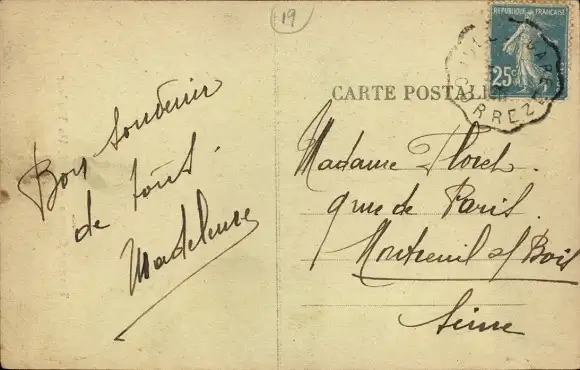 19
REPUBLIQUE FRANÇAISE
25c
CORREZ
CARTE POSTALE
Bon souvenir
de tous.
Madeleine
Madame Floret.
9 rue de Paris.
Montreuil s/ Bois
Seine